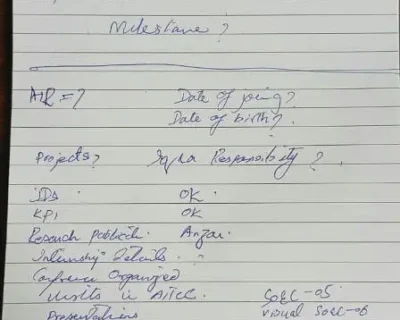 Milestone ?
ATR = ? Date of joing?
Date of birth?
Projects? Responsibility ?
JDs OK
KPI OK
Research Publicati. Anzar.
Internship Details. ?
Conference Organized
visits in
Presentations Visual SOEC-06
SOEC-05